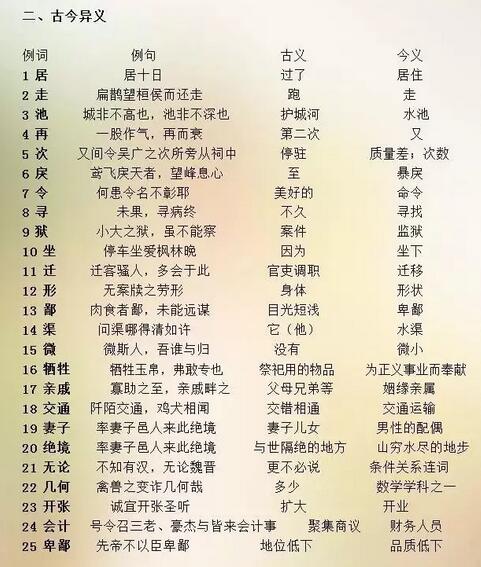 二、古今异义
例词 例句 古义 今义
1 居 居十日 过了 居住
2 走 扁鹊望桓侯而还走 跑 走
3 池 城非不高也，池非不深也 护城河 水池
4 再 一股作气，再而衰 第二次 又
5 次 又间令吴广之次所旁丛祠中 停驻 质量差；次数
6 戾 鸢飞戾天者，望峰息心 至 暴戾
7 令 何患令名不彰耶 美好的 命令
8 寻 未果，寻病终 不久 寻找
9 狱 小大之狱，虽不能察 案件 监狱
10 坐 停车坐爱枫林晚 因为 坐下
11 迁 迁客骚人，多会于此 官吏调职 迁移
12 形 无案牍之劳形 身体 形状
13 鄙 肉食者鄙，未能远谋 目光短浅 卑鄙
14 渠 问渠哪得清如许 它（他） 水渠
15 微 微斯人，吾谁与归 没有 微小
16 牺牲 牺牲玉帛，弗敢专也 祭祀用的物品 为正义事业而奉献
17 亲戚 寡助之至，亲戚畔之 父母兄弟等 姻缘亲属
18 交通 阡陌交通，鸡犬相闻 交错相通 交通运输
19 妻子 率妻子邑人来此绝境 妻子儿女 男性的配偶
20 绝境 率妻子邑人来此绝境 与世隔绝的地方 山穷水尽的地步
21 无论 不知有汉，无论魏晋 更不必说 条件关系连词
22 几何 禽兽之变诈几何哉 多少 数学学科之一
23 开张 诚宜开张圣听 扩大 开业
24 会计 号令召三老、豪杰与皆来会计事 聚集商议 财务人员
25 卑鄙 先帝不以臣卑鄙 地位低下 品质低下